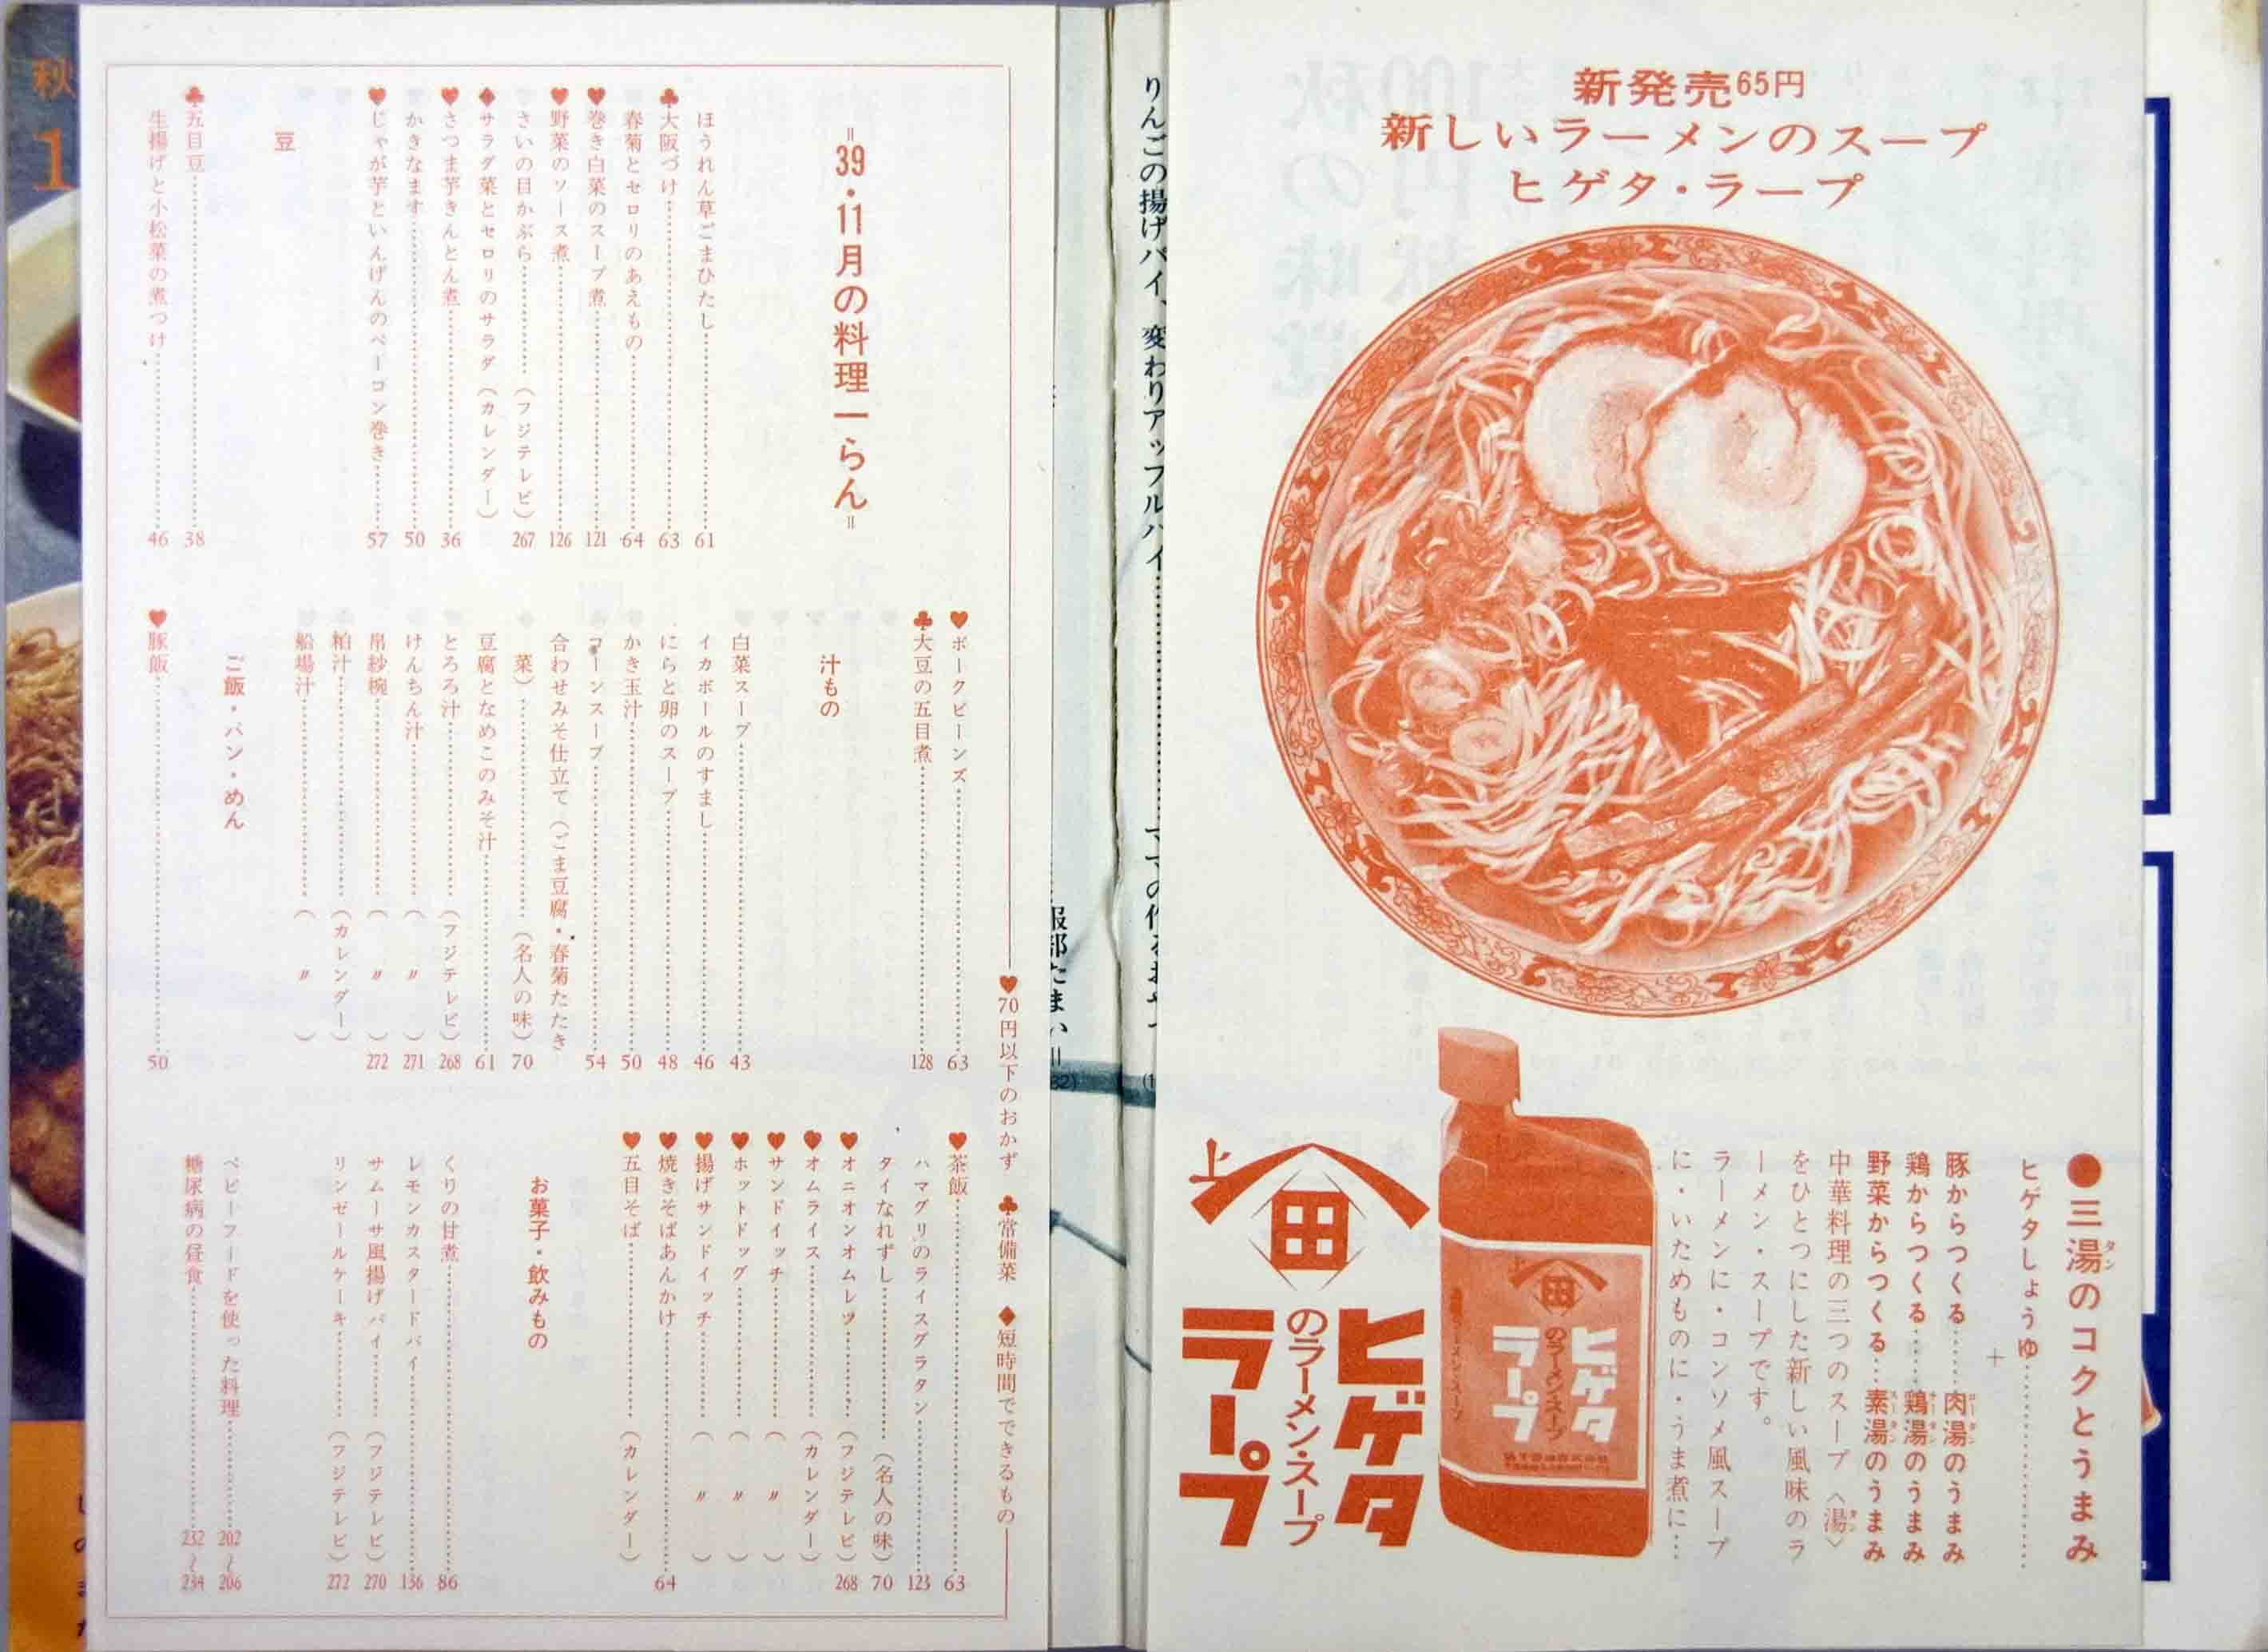 新発売65円
新しいラーメンのスープ
ヒゲタ・ラープ
●三湯のコクとうまみ
タン
ヒゲタしょうゆ……………
+
豚からつくる……肉湯のうまみ
ロータン
鶏からつくる……鶏湯のうまみ
チータン
野菜からつくる…素湯のうまみ
スータン
中華料理の三つのスープ〈湯〉
タン
をひとつにした新しい風味のラ
ーメン・スープです。
ラーメンに・コンソメ風スープ
に・いためものに・うま煮に…
上
田
ヒゲタ
のラーメン・スープ
ラープ
上
田
ヒゲタ
のラーメン・スープ
ラープ
りんごの揚げパイ、変わりアップルパイ
服部たまい=
♥70円以下のおかず ♣常備菜 ◆短時間でできるもの
=39・11月の料理一らん=
ほうれん草ごまひたし……61
♣大阪づけ……63
春菊とセロリのあえもの……64
♥巻き白菜のスープ煮……121
♥野菜のソース煮……126
さいの目かぶら……(フジテレビ)267
◆サラダ菜とセロリのサラダ(カレンダー)
♥さつま芋きんとん煮……36
かきなます……50
♥じゃが芋といんげんのベーコン巻き……57
豆
♣五目豆……38
生揚げと小松菜の煮つけ……46
♥ポークビーンズ……63
♣大豆の五目煮……128
汁もの
白菜スープ……43
イカボールのすまし……46
にらと卵のスープ……48
かき玉汁……50
コーンスープ……54
合わせみそ仕立て(ごま豆腐・春菊たたき
菜)……(名人の味)70
豆腐となめこのみそ汁……61
とろろ汁……(フジテレビ)268
けんちん汁……(〃)271
帛紗椀……(〃)272
粕汁……(カレンダー)
船場汁……(〃)
ご飯・パン・めん
♥豚飯……50
♥茶飯……63
ハマグリのライスグラタン……123
タイなれずし……(名人の味)70
♥オニオンオムレツ……(フジテレビ)268
♥オムライス……(カレンダー)
♥サンドイッチ……(〃)
♥ホットドッグ……(〃)
♥揚げサンドイッチ……(〃)
♥焼きそばあんかけ……64
♥五目そば……(カレンダー)
お菓子・飲みもの
くりの甘煮……86
レモンカスタードパイ……136
サムーサ風揚げパイ……(フジテレビ)270
リンゼールケーキ……(フジテレビ)272
ベビーフードを使った料理……202〜206
糖尿病の昼食……232〜234
秋
1